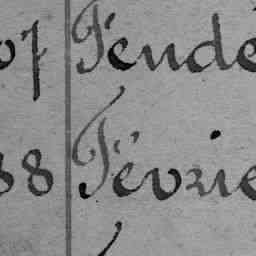 07 Fendé
38 Févrie